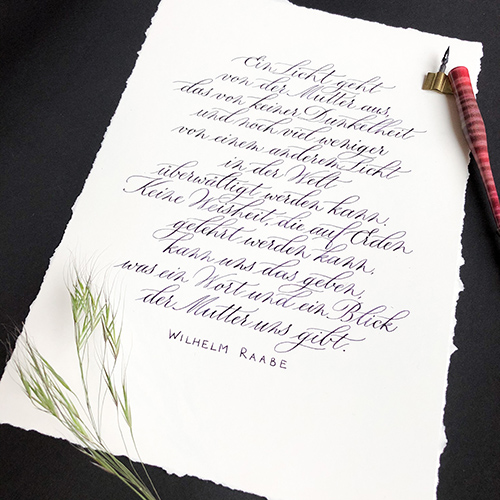 Ein Licht geht
von der Mutter aus,
das von keiner Dunkelheit
und noch viel weniger
von einem anderem Licht
in der Welt
überwältigt werden kann.
Keine Weisheit, die auf Erden
gelehrt werden kann,
kann uns das geben,
was ein Wort und ein Blick
der Mutter uns gibt.
WILHELM RAABE